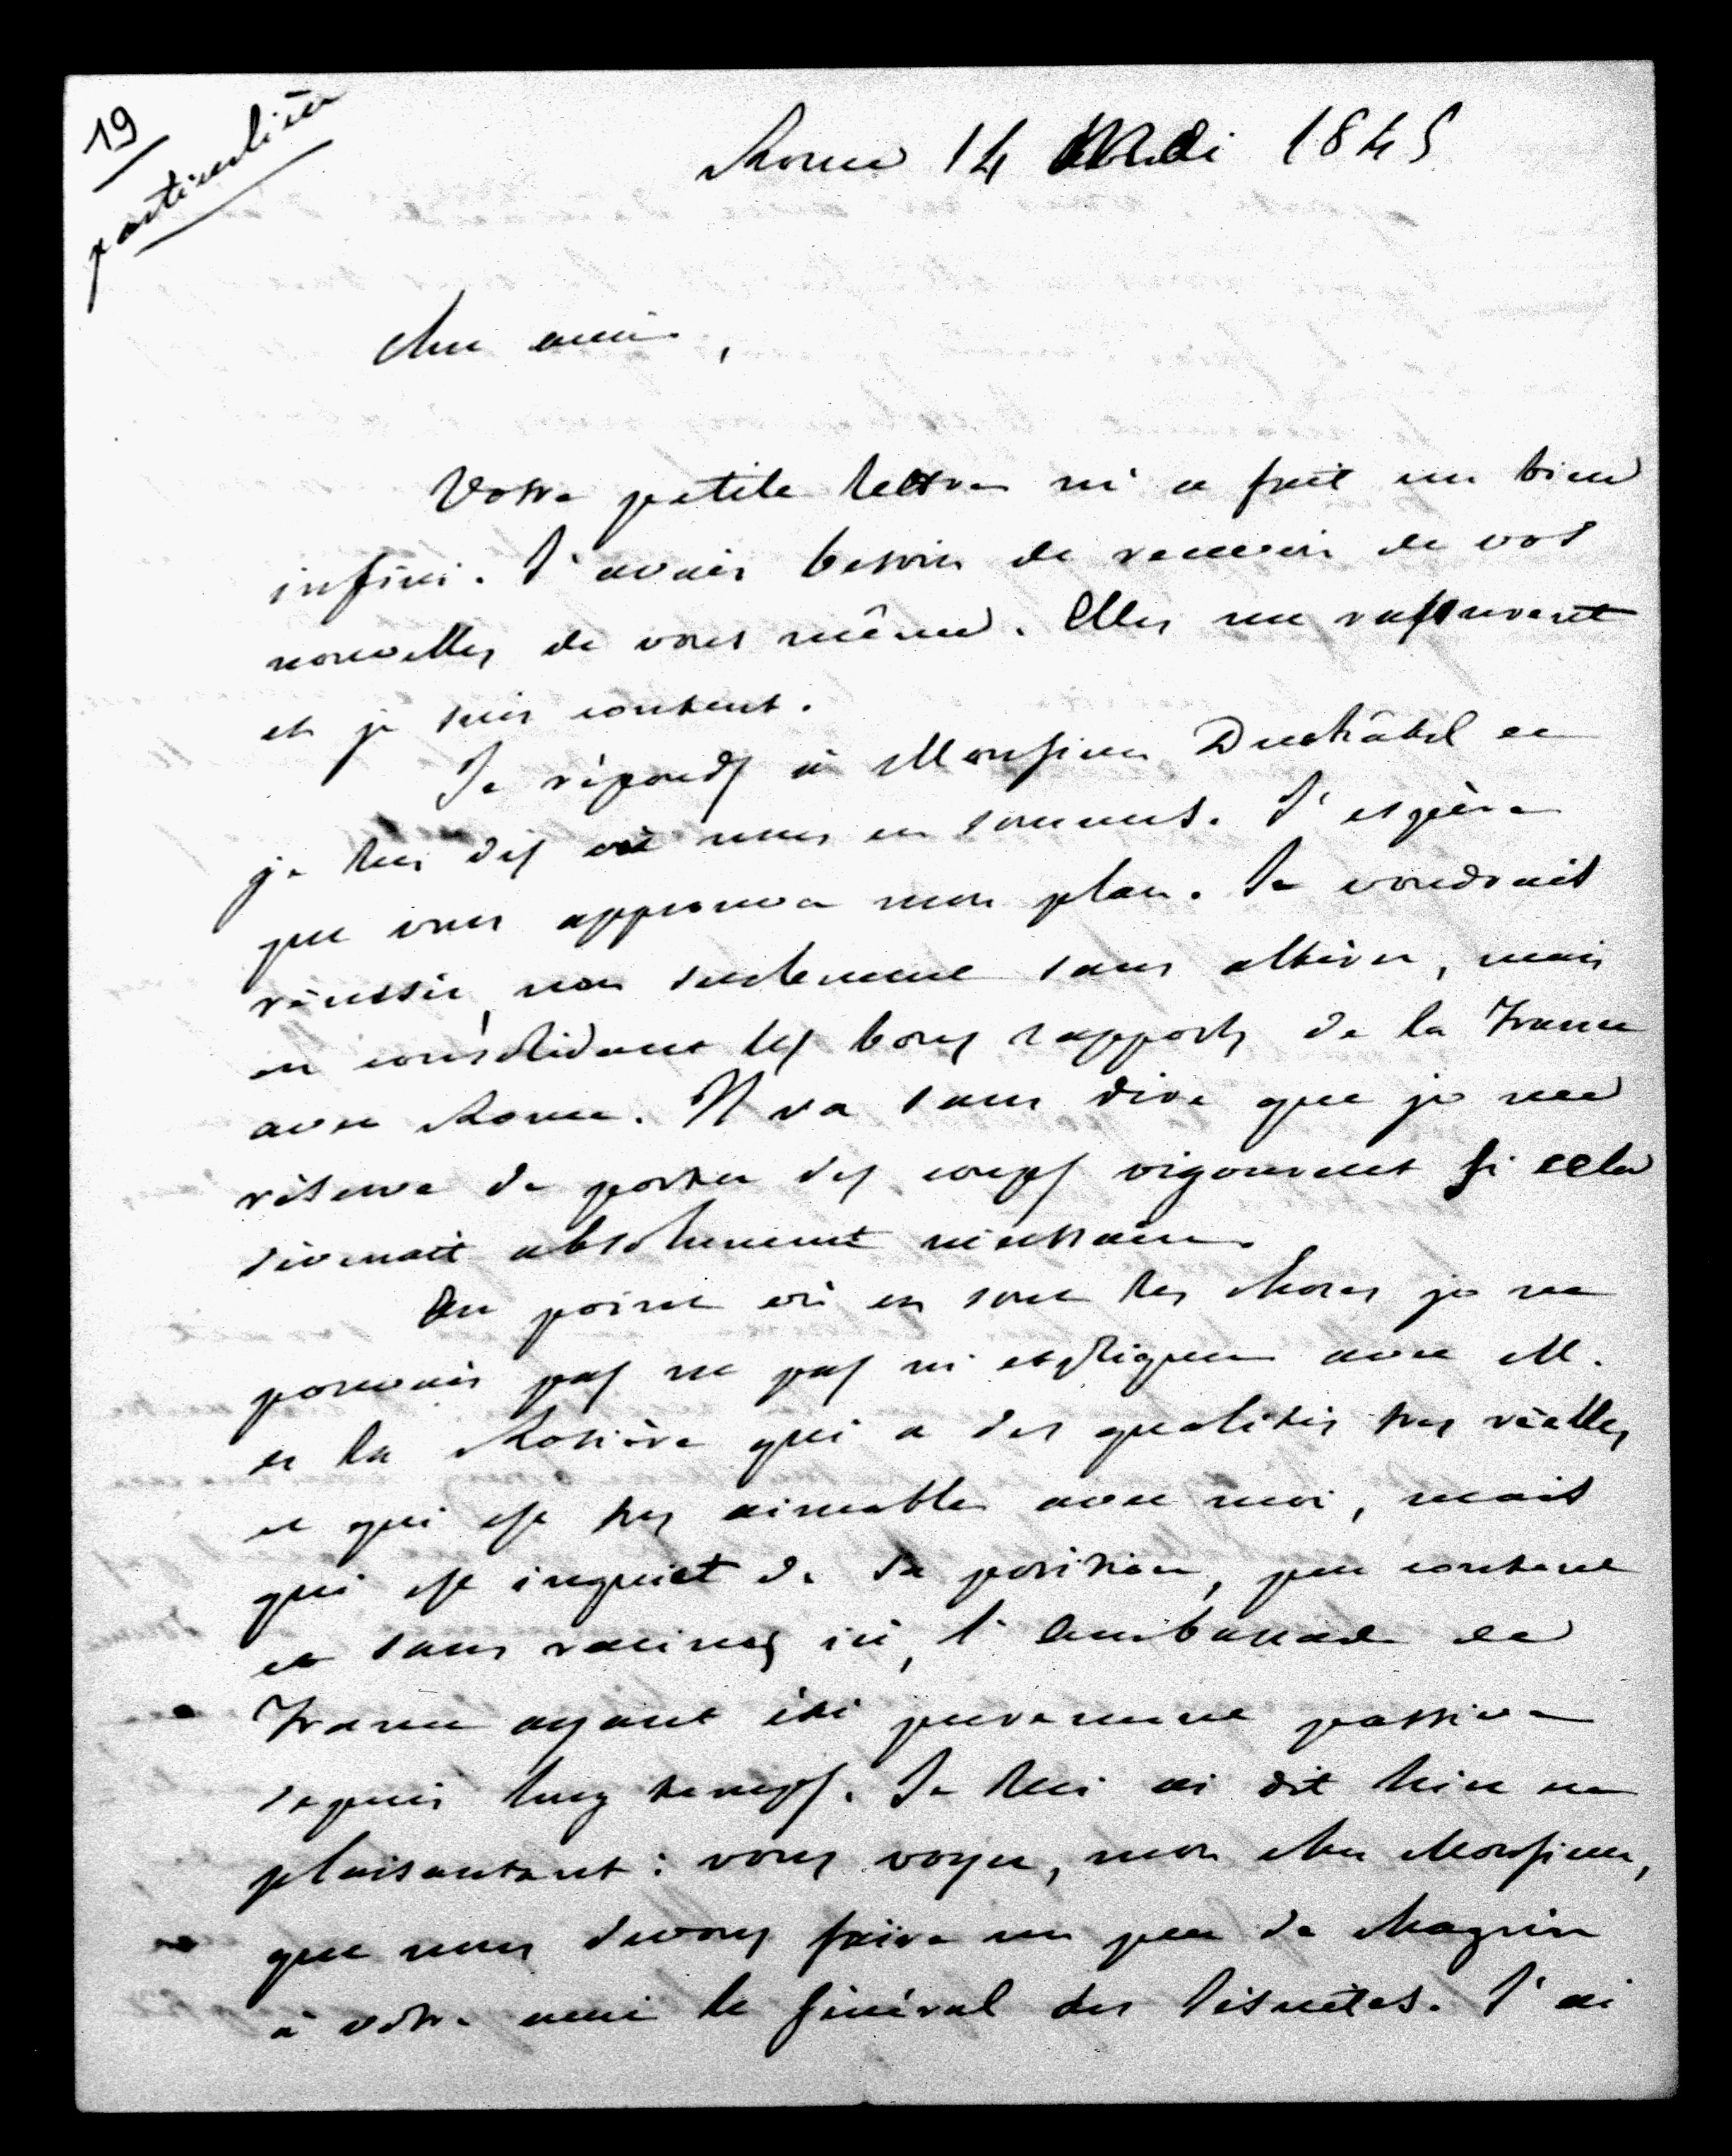 19
particulière
Rome 14 Mai 1845
Cher ami,
Votre petite lettre m'a fait un bien
infini. J'avais besoin de recevoir de vos
nouvelles de vous même. Elles me rassurent
et je suis content.
Je réponds à Monsieur Duchâtel et
je lui dis où nous en sommes. J'espère
que vous approuvez mon plan. Je voudrais
réussir, non seulement sans altérer, mais
en consolidant les bons rapports de la France
avec Rome. Il va sans dire que je me
réserve de porter des coups vigoureux si cela
devenait absolument nécessaire.
Au point où en sont les choses je ne
pouvais pas ne pas m'expliquer avec M.
de la Rosière qui a des qualités très réelles
et qui est très aimable avec moi, mais
qui est inquiet de sa position, peu content
et sans racines ici, l'ambassade de
France ayant été purement passive
depuis long temps. Je lui ai dit hier en
plaisantant : vous voyez, mon cher Monsieur,
que nous devons faire un peu de chagrin
à votre ami le Général des Jésuites. J'ai